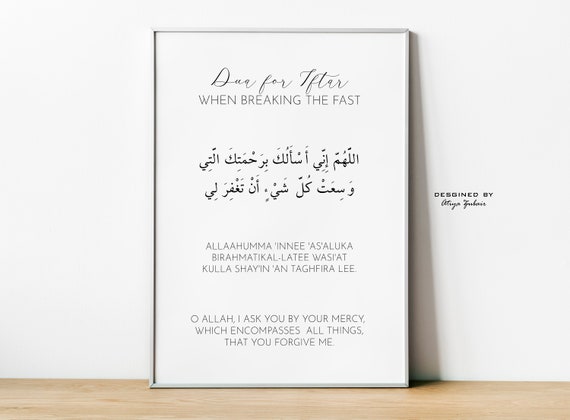 Dua for Iftar
WHEN BREAKING THE FAST
اللَّهُمَّ إِنِّي أَسْأَلُكَ بِرَحْمَتِكَ الَّتِي
وَسِعَتْ كُلَّ شَيْءٍ أَنْ تَغْفِرَ لِي
ALLAAHUMMA 'INNEE 'AS'ALUKA
BIRAHMATIKAL-LATEE WASI'AT
KULLA SHAY'IN 'AN TAGHFIRA LEE.
O ALLAH, I ASK YOU BY YOUR MERCY,
WHICH ENCOMPASSES ALL THINGS,
THAT YOU FORGIVE ME.
DESGINED BY
Atiya Zubair